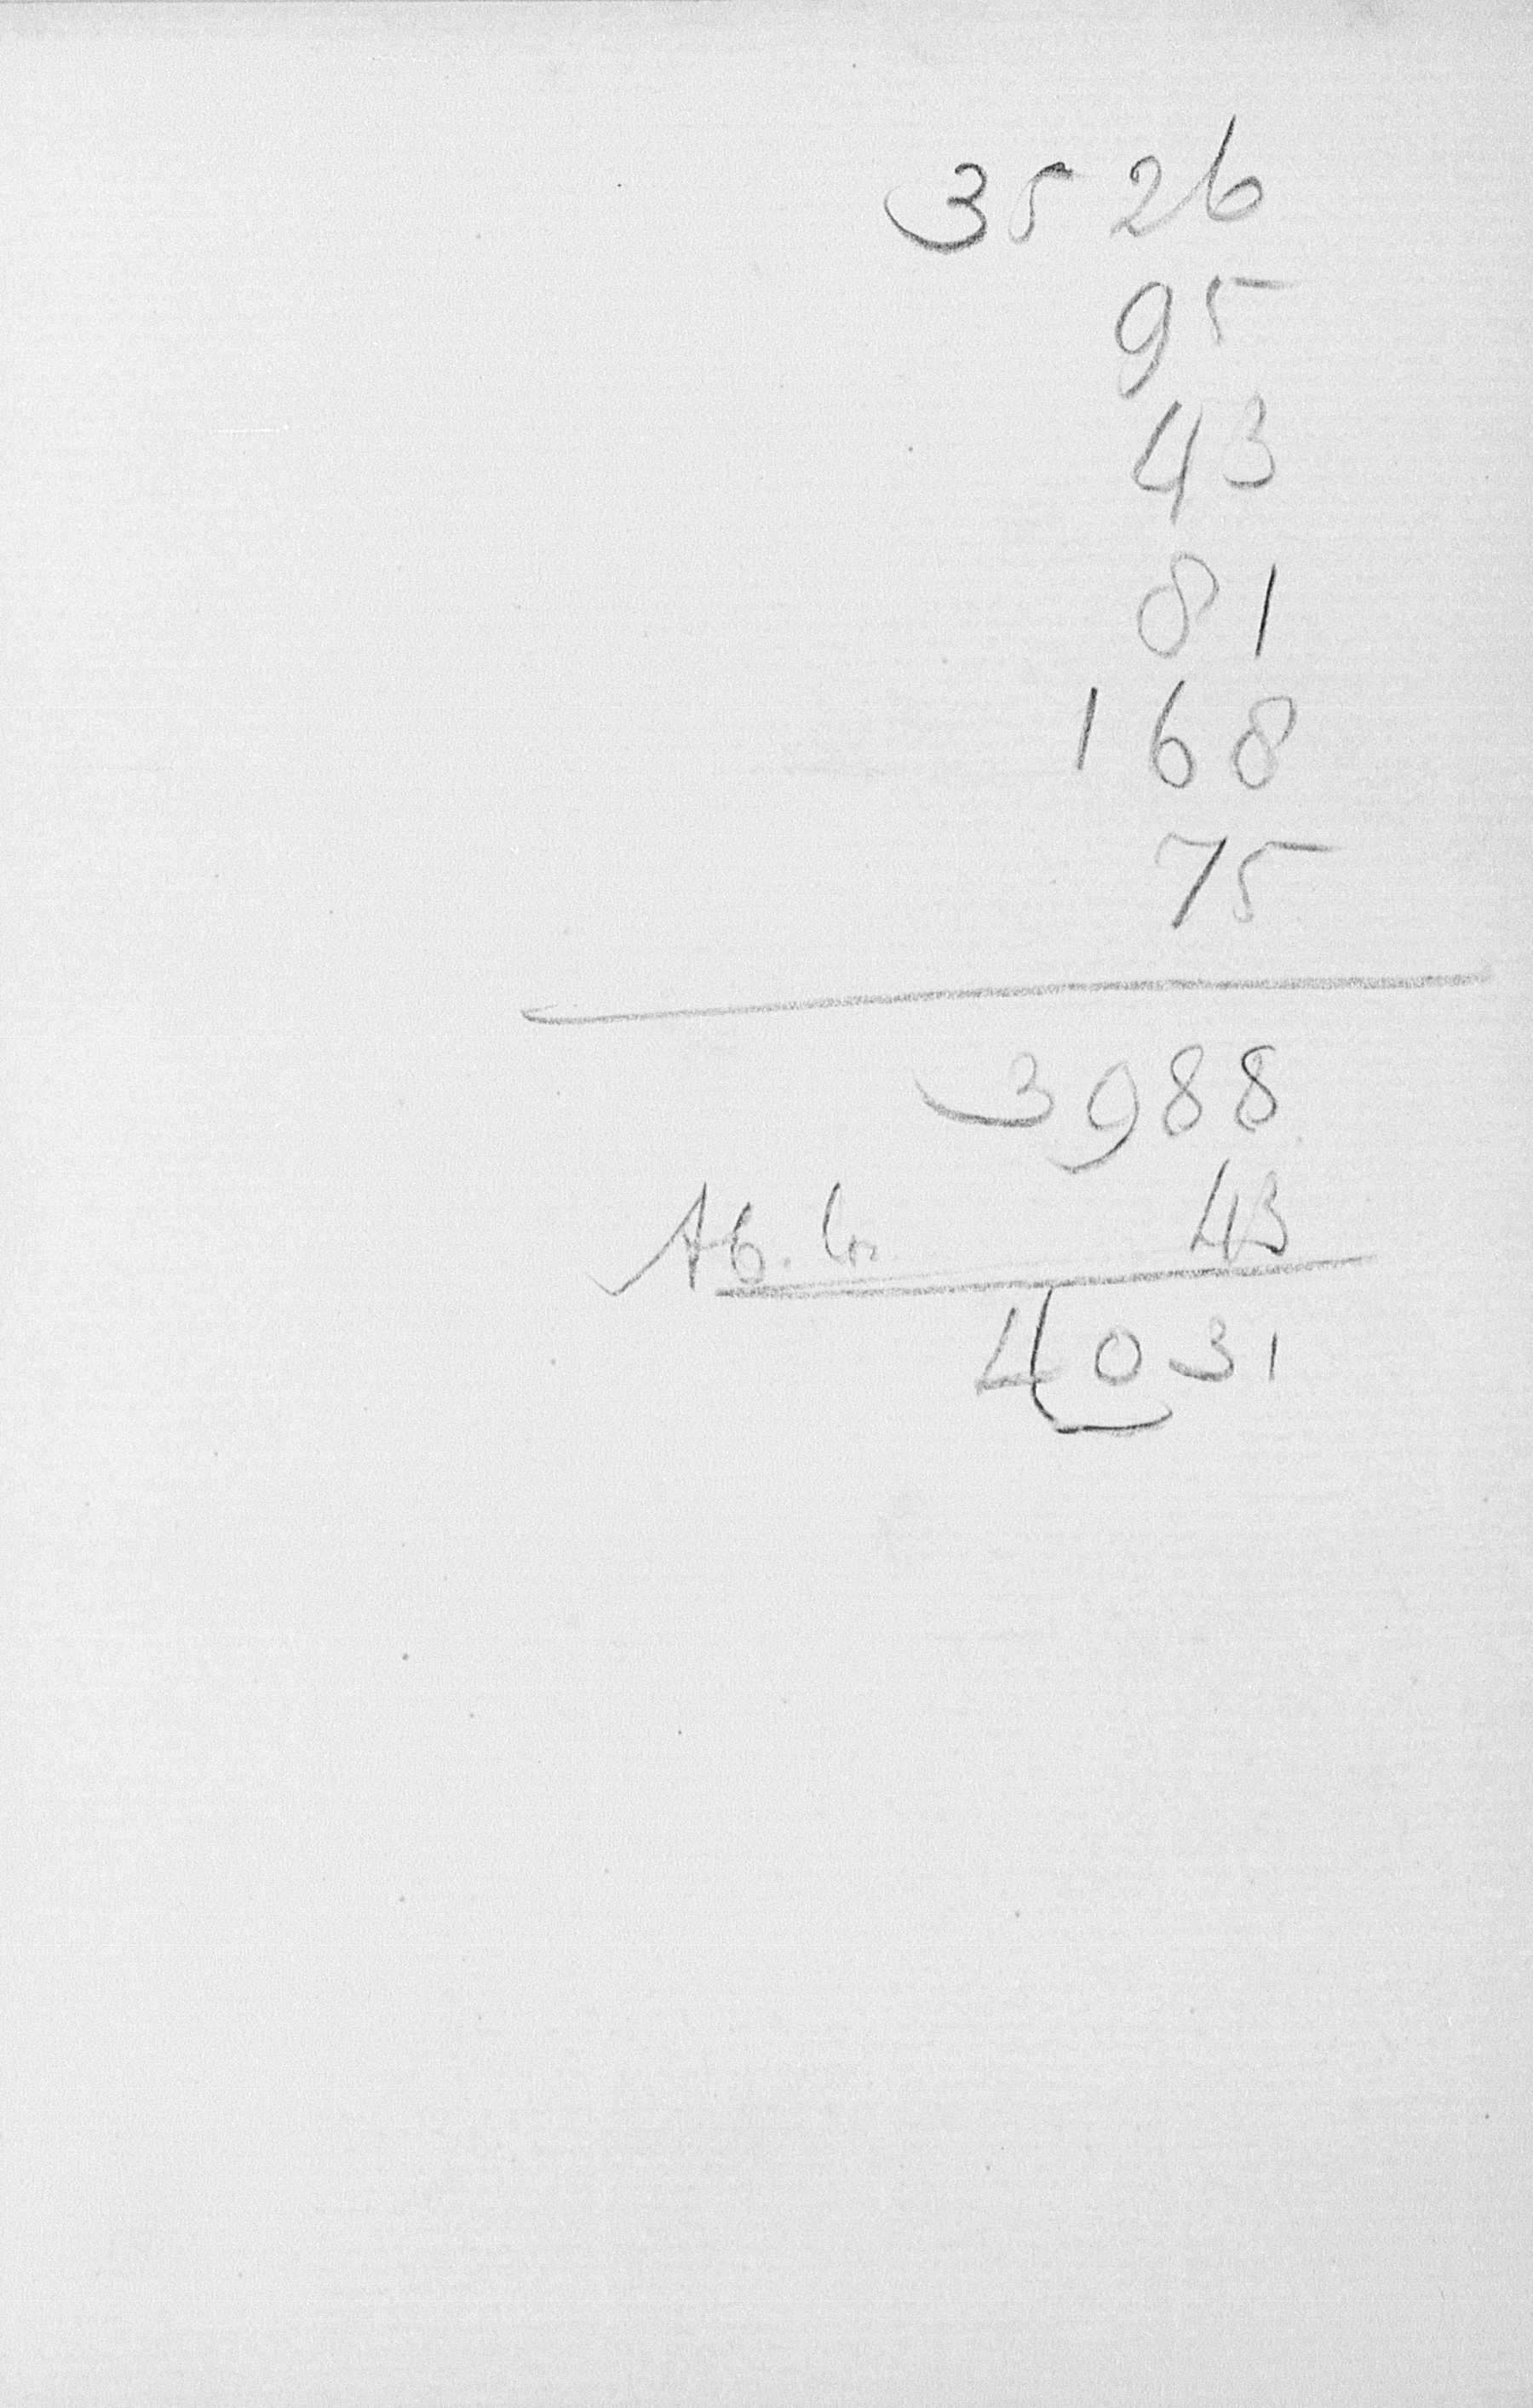 3526
95
43
81
168
75
3988
Ab. 43
4031